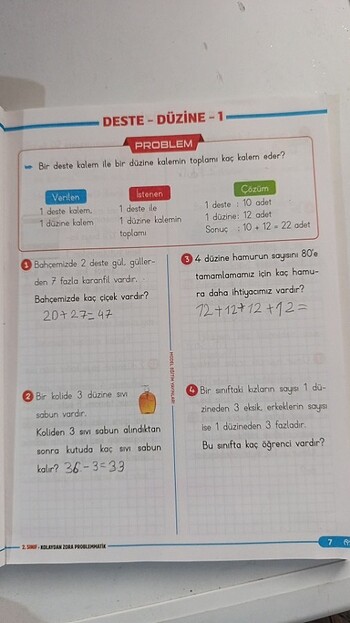 DESTE - DÜZİNE - 1
PROBLEM
Bir deste kalem ile bir düzine kalemin toplamı kaç kalem eder?
Verilen
1 deste kalem,
1 düzine kalem
İstenen
1 deste ile
1 düzine kalemin
toplamı
Çözüm
1 deste : 10 adet
1 düzine: 12 adet
Sonuç : 10 + 12 = 22 adet
1 Bahçemizde 2 deste gül, güller-
den 7 fazla karanfil vardır.
Bahçemizde kaç çiçek vardır?
20+27=47
2 Bir kolide 3 düzine sıvı
sabun vardır.
Koliden 3 sıvı sabun alındıktan
sonra kutuda kaç sıvı sabun
kalır? 36-3=33
3 4 düzine hamurun sayısını 80'e
tamamlamamız için kaç hamu-
ra daha ihtiyacımız vardır?
12+12+12+12=
4 Bir sınıftaki kızların sayısı 1 dü-
zineden 3 eksik, erkeklerin sayısı
ise 1 düzineden 3 fazladır.
Bu sınıfta kaç öğrenci vardır?
2. SINIF - KOLAYDAN ZORA PROBLEMMATİK
7